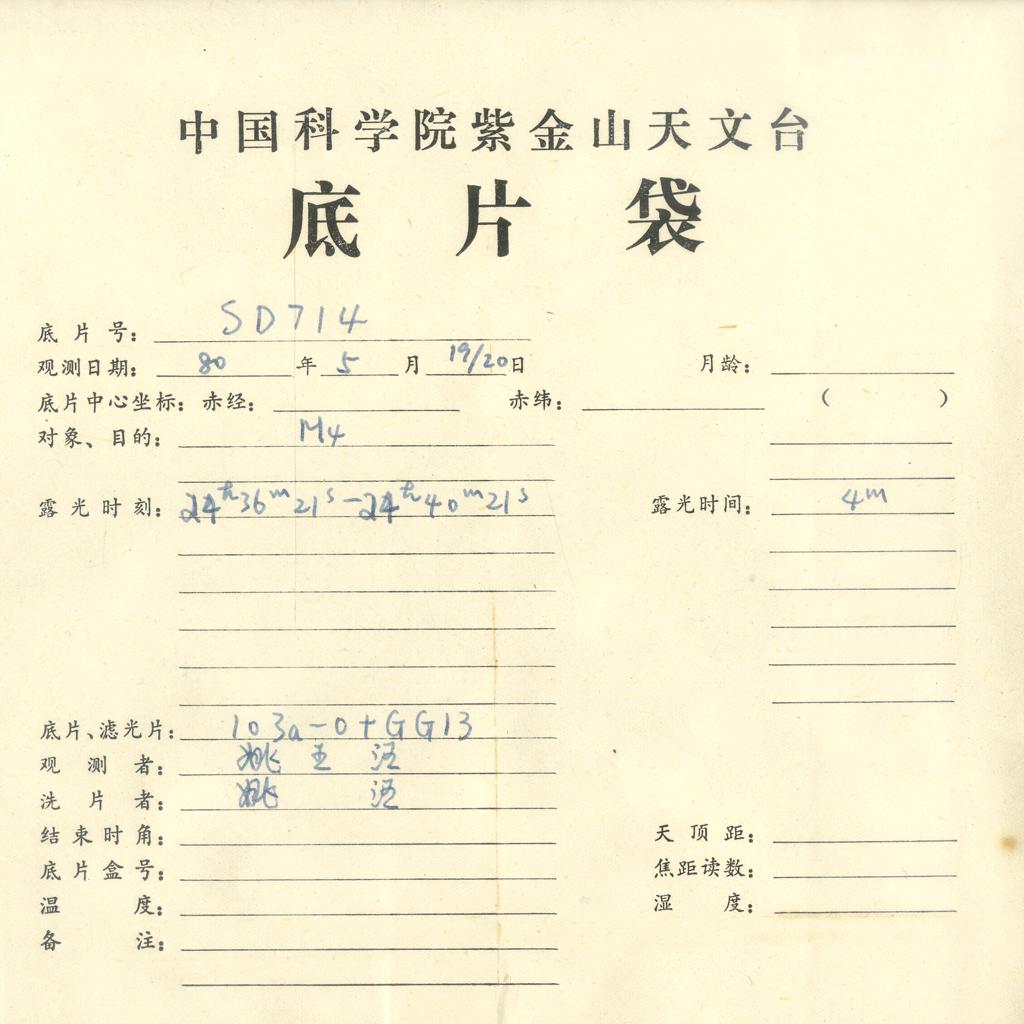 中国科学院紫金山天文台
底片袋
底片号： SD714
观测日期： 80 年 5 月 19/20 日 月龄：
底片中心坐标：赤经： 赤纬： （ ）
对象、目的： M4
露光时刻： 24h36m21s－24h40m21s 露光时间： 4m
底片、滤光片： 103a-0+GG13
观测者： 姚 王
洗片者： 姚
结束时角： 天顶距：
底片盒号： 焦距读数：
温度： 湿度：
备注：